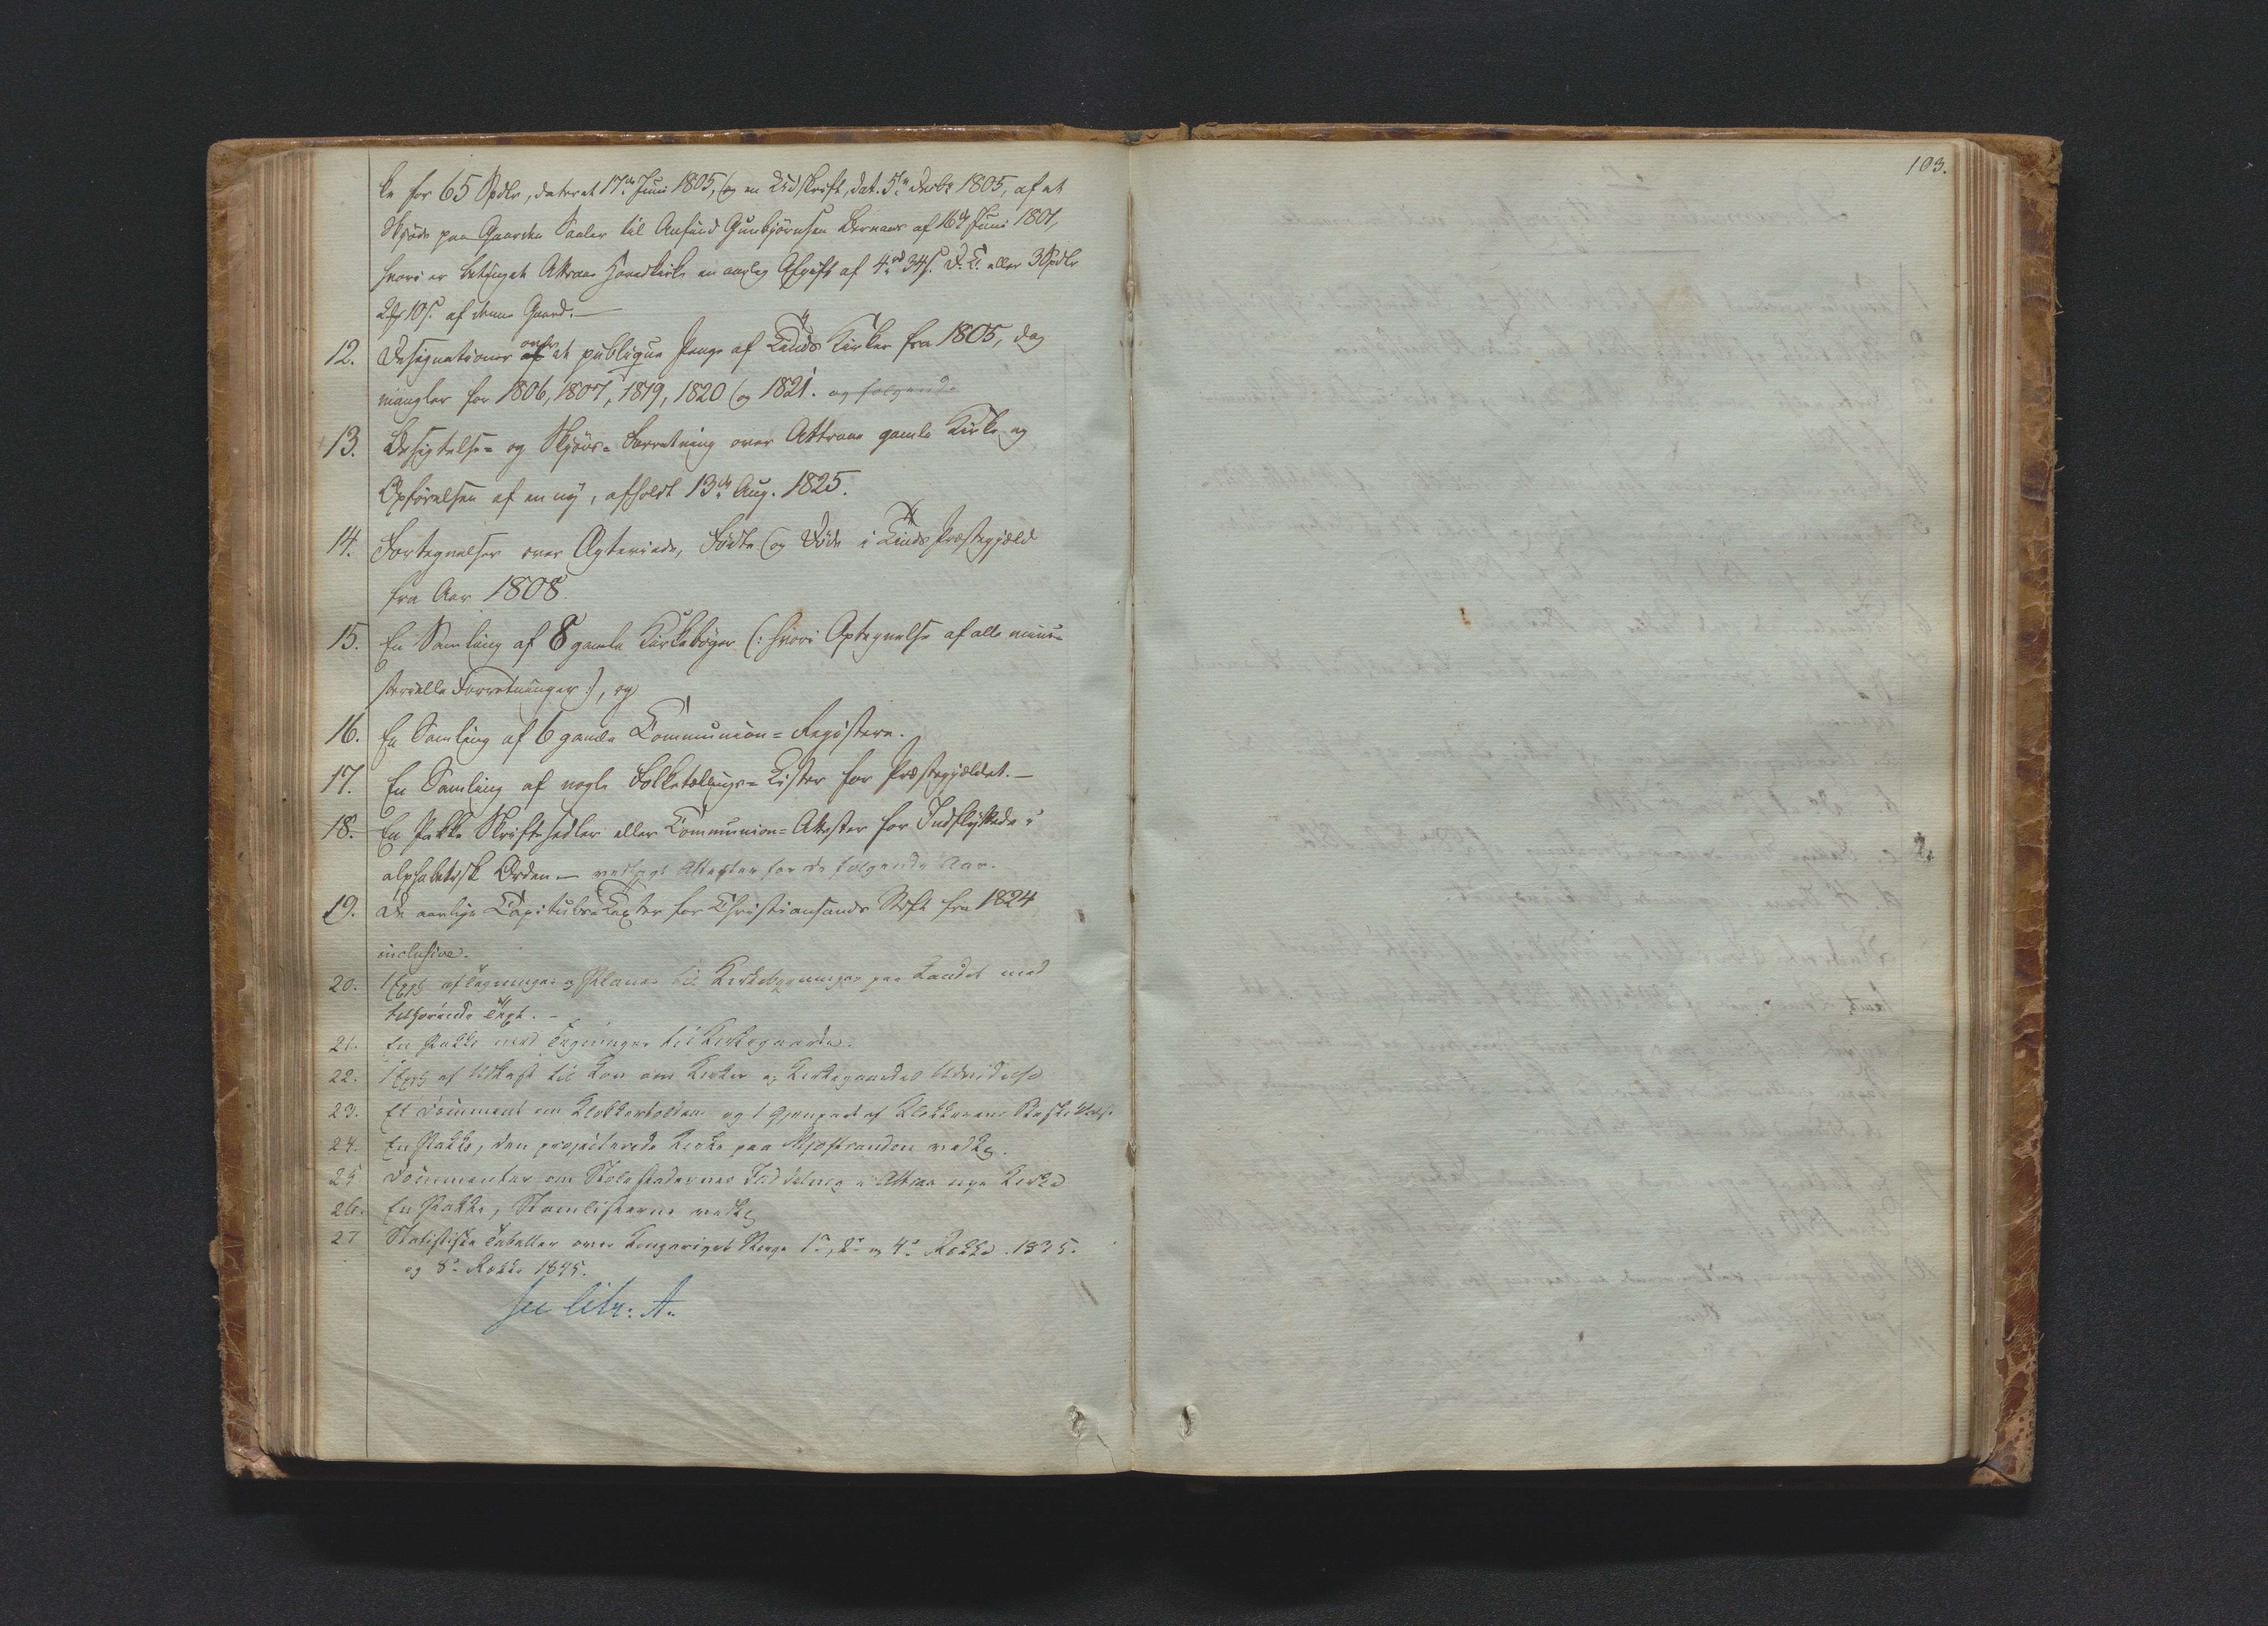 ke for 65 Spdlr, dateret 17de Juni 1805, og en Udskrift, dat. 5te Decbr 1805, af et
Skjøde paa Gaarden Saaler til Anfind Gunbjørnsen Bernaas af 16de Juni 1801,
hvori er betinget Attraae Hovedkirke en aarlig Afgift af 4 rd 34 s. D. C. eller 3 Spdlr
2 10 s. af denne Gaard. —
12. Designationer af over et publique Penge af Kinds Kirker fra 1805, dog
mangler for 1806, 1807, 1819, 1820 og 1821. og følgende
13. Besigtelse- og Skjøns- Forretning over Attraae gamle Kirke og
Opførelsen af en ny, afholdt 13de Aug. 1825.
14. Fortegnelser over Ægteviede, Fødte og Døde i Kinds Præstegjæld
fra Aar 1808.
15. En Samling af 8 gamle Kirkebøger (: hvori Optegnelse af alle mini-
sterielle Forretninger :), og
16. En Samling af 6 gamle Communion- Registere.
17. En Samling af nogle Folketællings- Lister for Præstegjældet. —
18. En Pakke Skriftesedler eller Communion- Attester for Indflyttede i
alphabetisk Orden — vedlagt Attester for de følgende Aar.
19. De aarlige Capituls Taxter for Christiansands Stift fra 1824
inclusive.
20. 1 Expl af Tegninger og Planer til Kirkebygninger paa Landet med
tilhørende Text. —
21. En Pakke med Tegninger til Kirkegaarde.
22. 1 Expl af Udkast til Lov om Kirker og Kirkegaardes Udvidelse
23. Et Document om Klokkertolden og 1 Gjenpart af Klokkerens
24. En Pakke, den projecterede Kirke paa Mjøstranden vedk.
25 Documenter om Stolestadernes Inddeling i Attraae nye Kirke
26. En Pakke, Stamlisterne vedk.
27 Statistiske Tabeller over Kongeriget Norge 1e, 2e og 4e Række. 1835.
og 8e Række 1845.
see litr: A.
103.